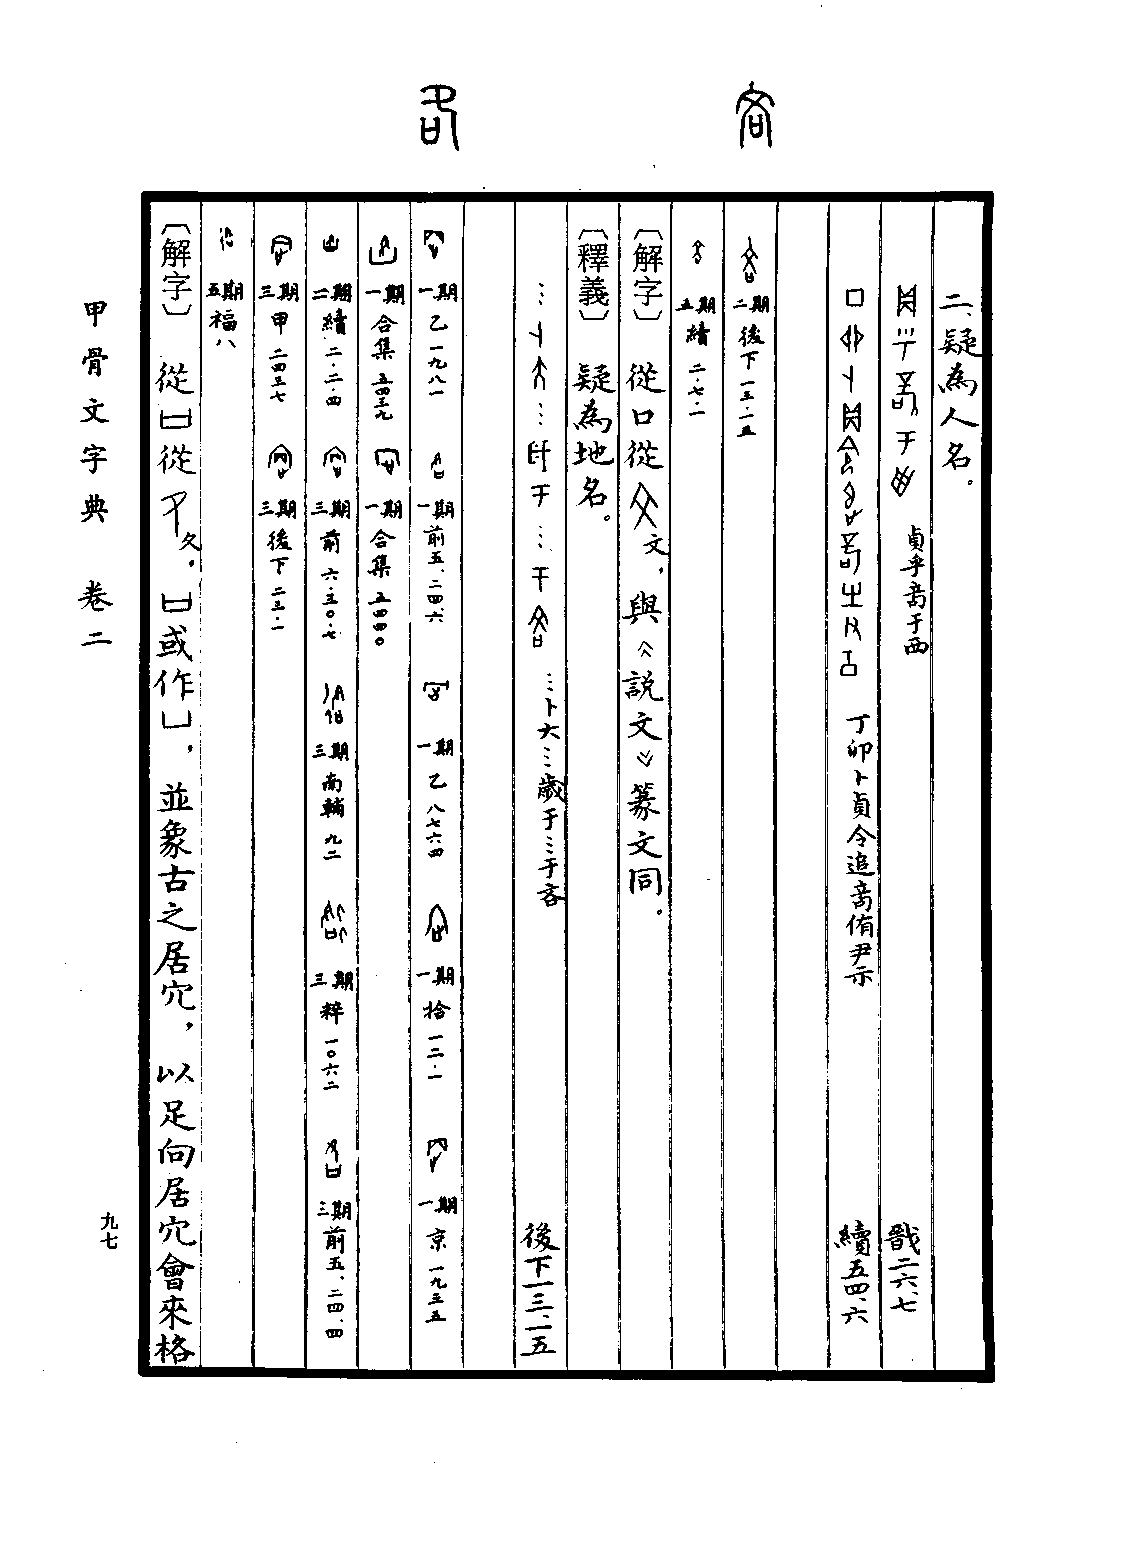 吝
各
二、疑為人名。
貞乎啇于西 戩二六、七
丁卯卜貞令追啇侑尹示 續五四、六
二期 後下一三·一五
五期 續二·七·一
〔解字〕 從口從文，與《說文》篆文同。
〔釋義〕 疑為地名。
…卜大…歲于…于吝 後下一三、一五
一期 乙一九八一 一期 前五、二四、六 一期 乙八七六四 一期 拾一二·一 一期 京一九三五
一期 合集五四三九 一期 合集五四四〇
二期 續二·二·四 三期 前六·三〇·七 三期 南輔九二 三期 粹一〇六二 三期 前五、二四、四
三期 甲二四三七 三期 後下二三·一
五期 福八
〔解字〕 從凵從夂，凵或作凵，並象古之居穴，以足向居穴會來格
甲骨文字典 卷二
九七